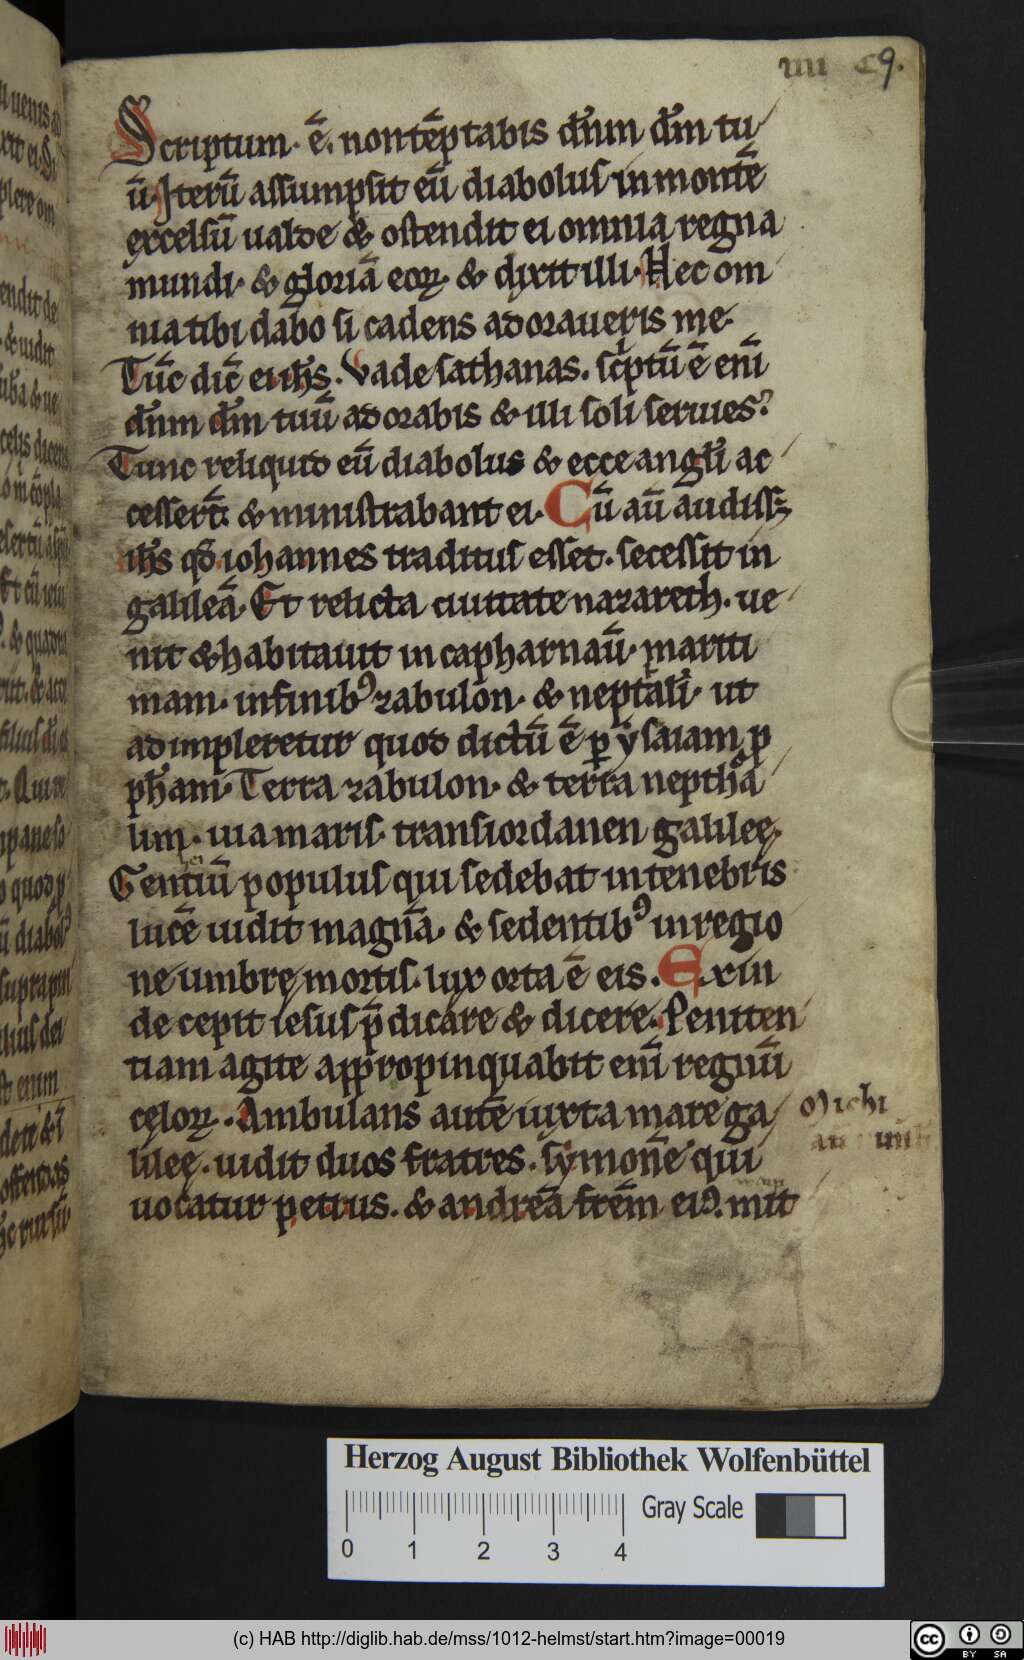 iiii C 9.
Scriptum· ē. non tēptabis dn̄m dm̄ tu
ū· Iterū assumpsit eū diabolus in montē
excelsū ualde & ostendit ei omnia regna
mundi· & gloriā eoꝝ· & dixit illi· Hec om
nia tibi dabo si cadens adoraueris me·
Tūc dic̄ ei ih̄s. Vade sathanas. sc̄ptū ē enī
dn̄m dm̄ tuū adorabis & illi soli seruies?
Tunc reliquid eū diabolus & ecce angl̄i ac
cessert̄· & ministrabant ei· Cū aū audiss&
ih̄s qđ iohannes traditus esset. secessit in
galileā· Et relicta ciuitate nazareth. ue
nit & habitauit in capharnaū· mariti
mam· in finibꝰ zabulon· & neptali· ut
adimpleretur quod dictū ē ꝑ ysaiam ꝓ
ph̄am· Terra zabulon· & terra neptha
lim· uia maris· trans iordanen galileę·
Gentiū populus qui sedebat in tenebris
lucē uidit magnā· & sedentibꝰ in regio
ne umbrę mortis· lux orta ē eis. Exin
de cepit iesus p̄dicare & dicere· Peniten
tiam agite appropinquabit enī regnū
cęloꝝ. Ambulans autē iuxta mare ga
lileę. uidit duos fratres. symonē qui
uocatur petrus. & andreā frēm eiꝰ. mit
Michi
Herzog August Bibliothek Wolfenbüttel
Gray Scale
0 1 2 3 4
(c) HAB http://diglib.hab.de/mss/1012-helmst/start.htm?image=00019
cc BY SA